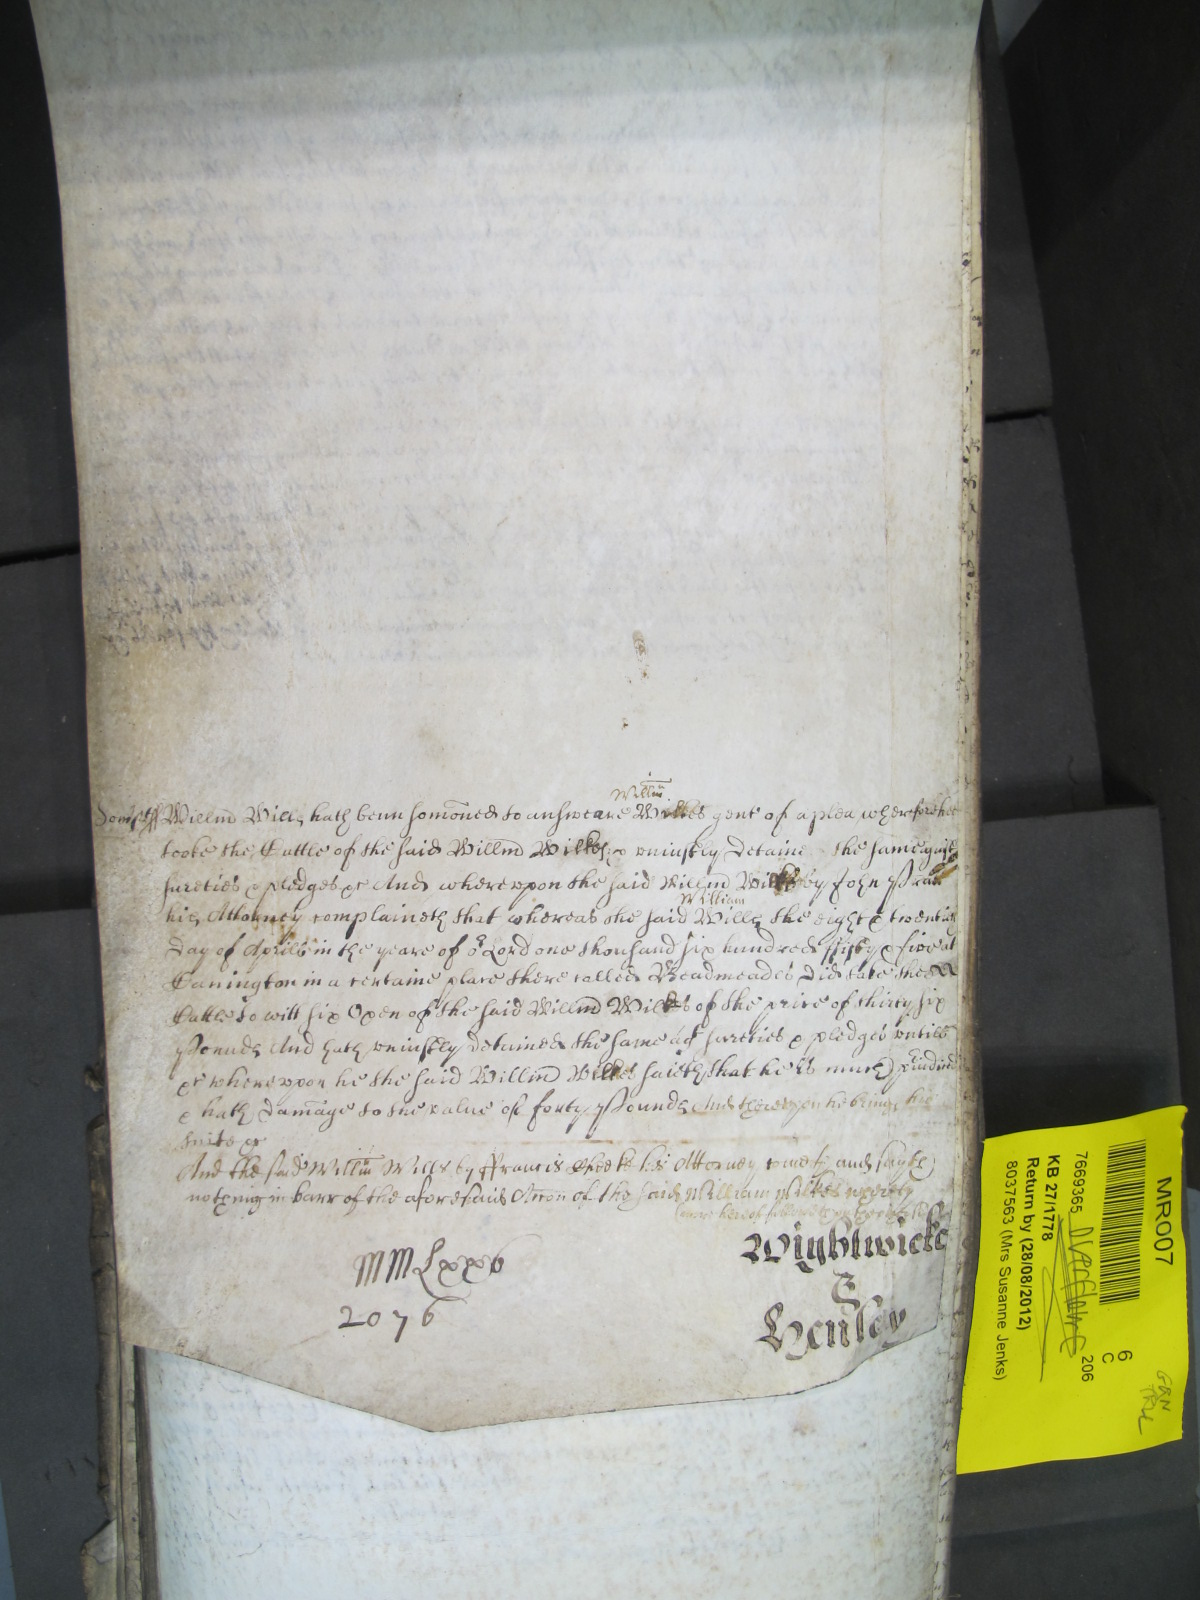 Willm
Somst ss Willm Wills hath beene somoned to answeare Wilkes gent of a plea wherefore hee
tooke the Cattle of the said Willm Wilkes & uniustly detaine the same against
sureties & pledges &c And whereupon the said Willm Wilkes by John
his Attorney complaineth that whereas the said Wills the eight & twentieth
William
day of Aprill in the yeare of or Lord one thousand six hundred ffifty & five at
Canington in a certaine place there called Broadmeades did take the
Cattle to witt six Oxen of the said Willm Wilkes of the price of thirty six
Pounds And hath uniustly detained the same agt sureties & pledges untill
&c whereupon he the said Willm Wilkes saieth that he is
& hath damage to the value of forty Pounds And thereupon he brings his
suite &c
And the said Willm Wills by ffrancis his Attorney cometh and sayth
nothing in barr of the aforesaid Accon of the said William Wilkes
MMLxxvi
2076
Wightwicke
&
Henley
MR007
7669365
206
6
C
KB 27/1778
Return by (28/08/2012)
8037563 (Mrs Susanne Jenks)